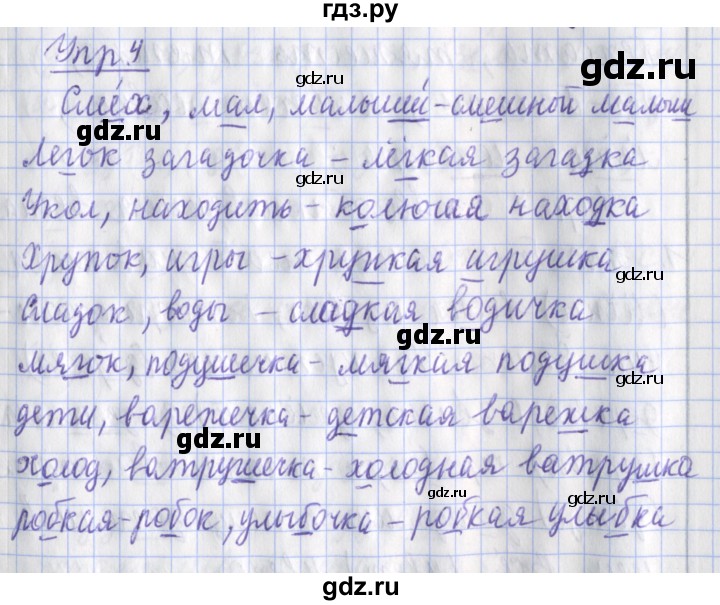 гдз.ру
Упр 4
gdz.ru
gdz.ru
Смех, мал, малыши́ - смешной малыш
gdz.ru
gdz.ru
Легок загадочка - лёгкая загадка
gdz.ru
Укол, находить - колючая находка
Хрупок, игры - хрупкая игрушка
gdz.ru
Сладок, воды - сладкая водичка
gdz.ru
мягок, подушечка - мягкая подушка
gdz.ru
дети, варежечка - детская варежка
gdz.ru
холод, ватрушечка - холодная ватрушка
gdz.ru
gdz.ru
робкая - робок, улыбочка - робкая улыбка
gdz.ru